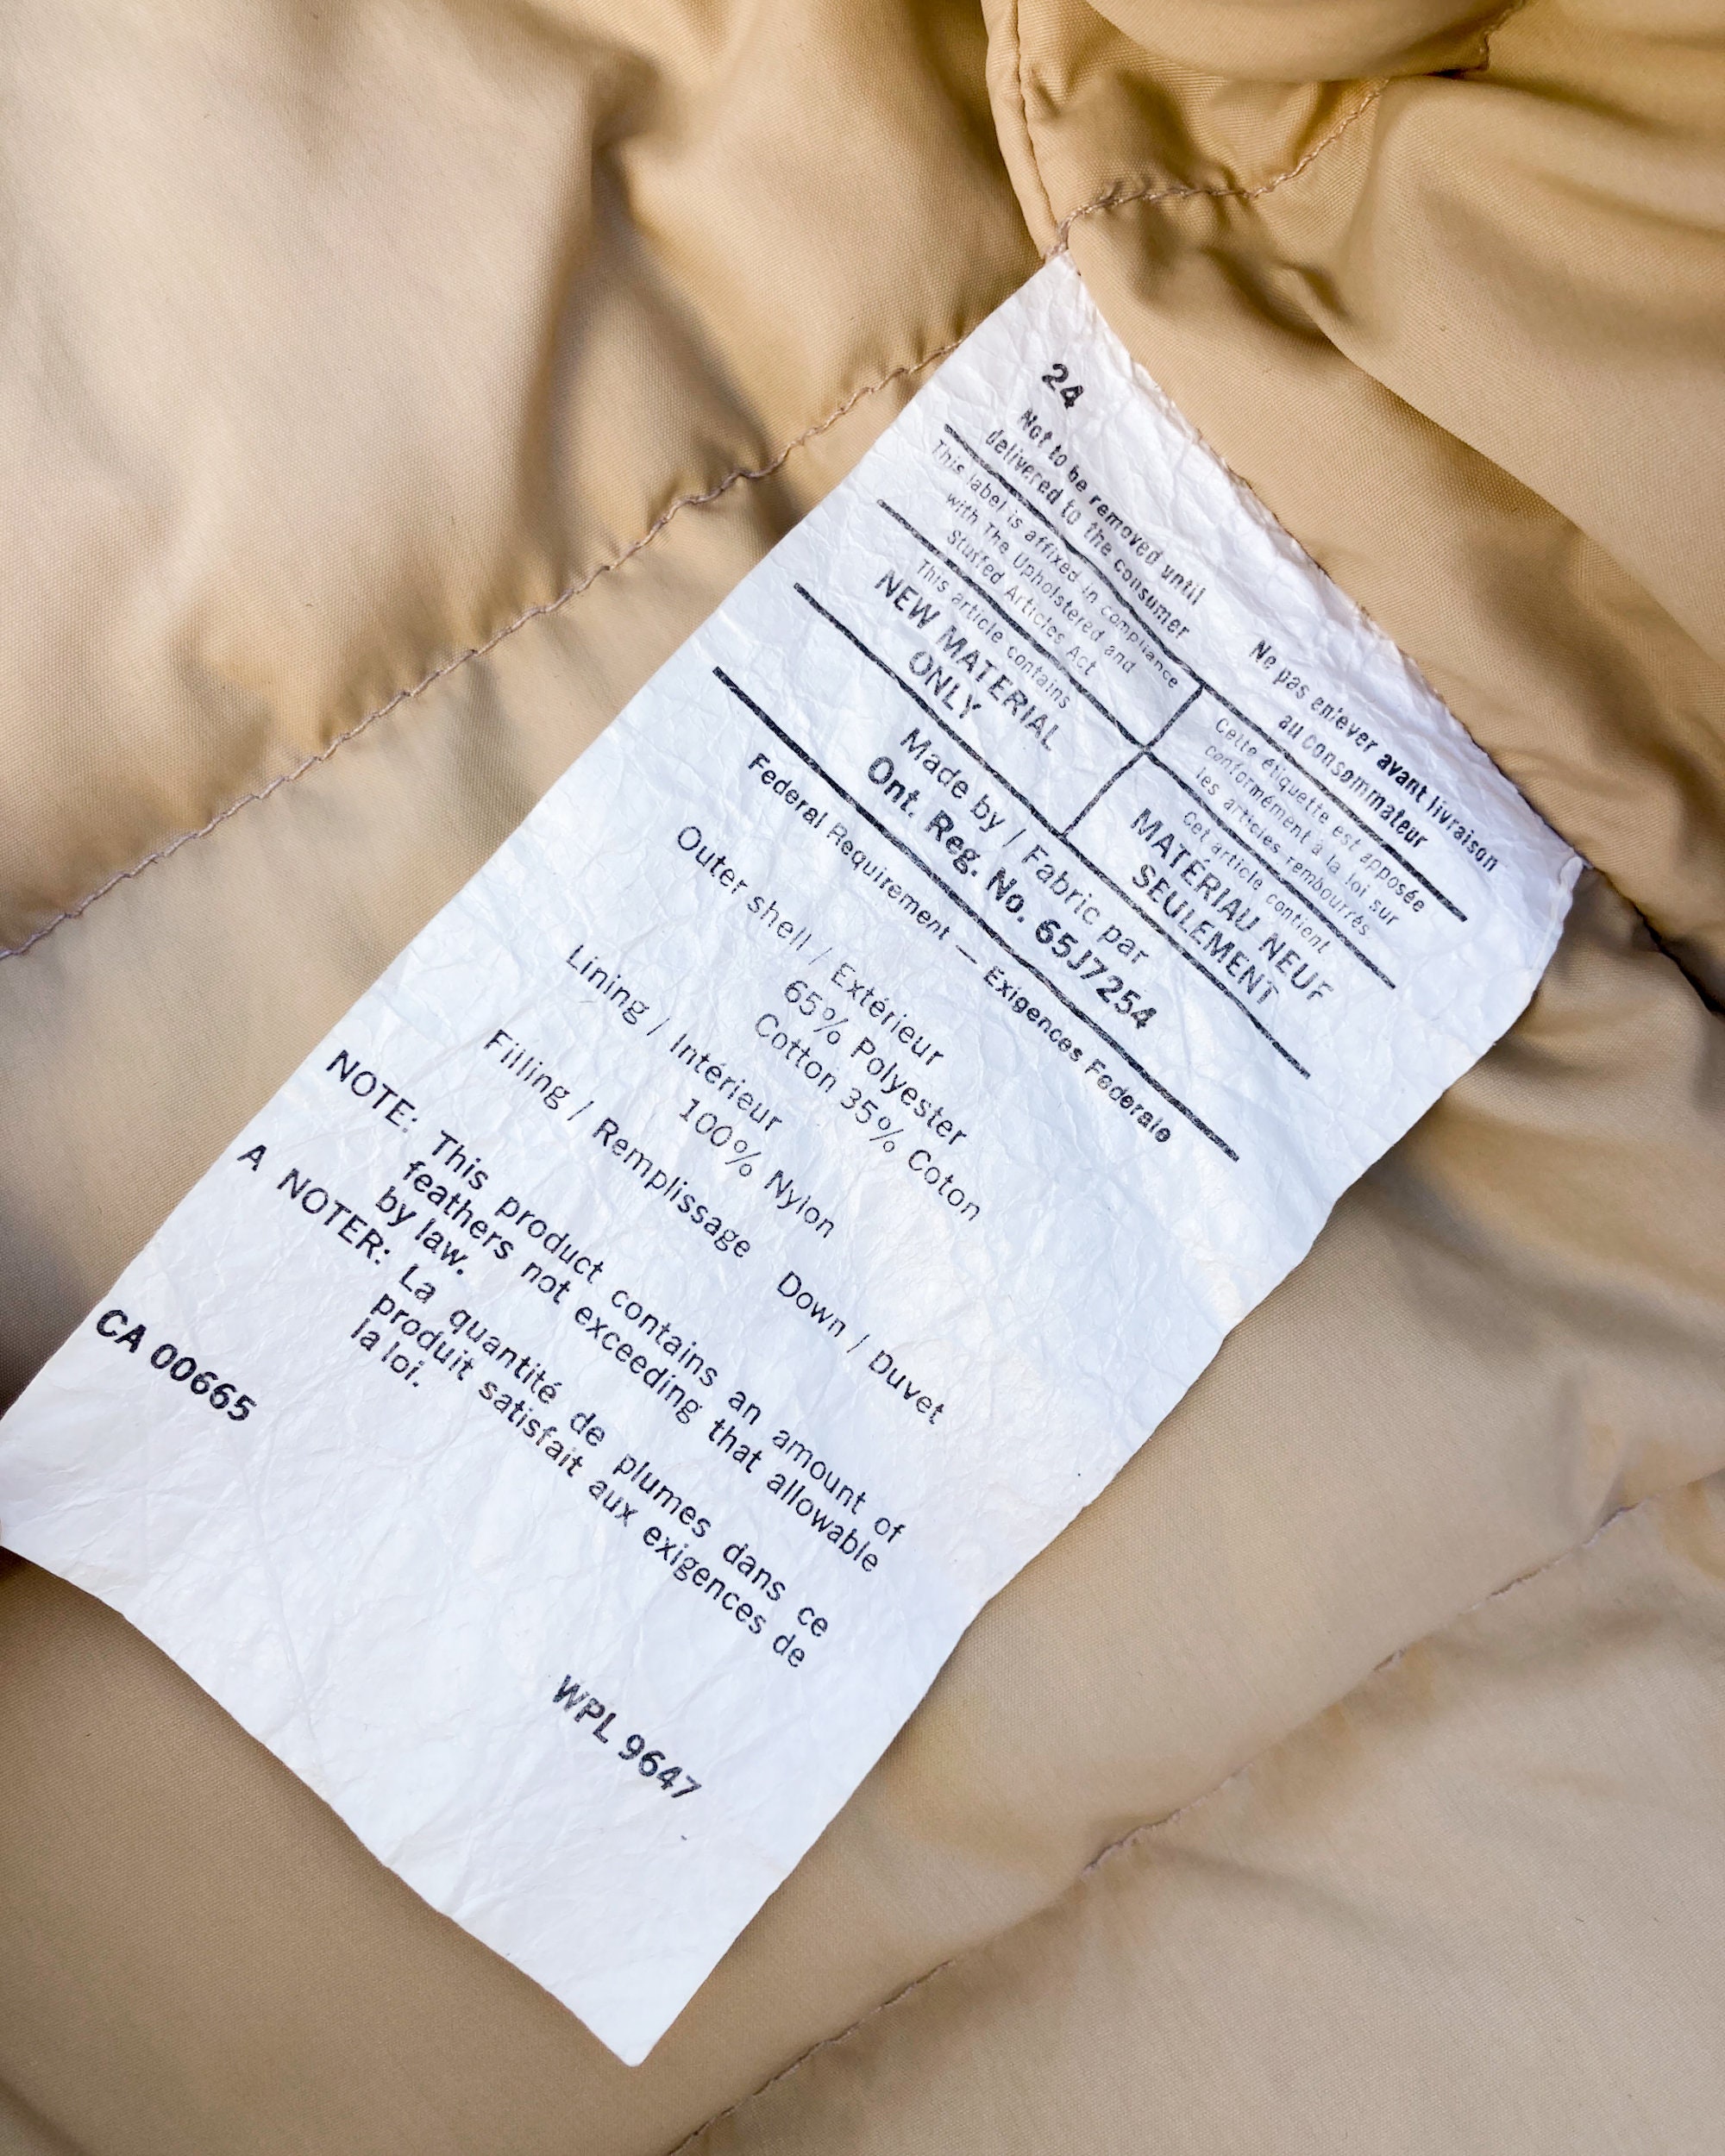 24
Not to be removed until
delivered to the consumer
Ne pas enlever avant livraison
au consommateur
This label is affixed in compliance
with The Upholstered and
Stuffed Articles Act
Cette étiquette est apposée
conformément à la loi sur
les articles rembourrés
This article contains
NEW MATERIAL
ONLY
Cet article contient
MATÉRIAU NEUF
SEULEMENT
Made by / Fabric par
Ont. Reg. No. 65J7254
Federal Requirement — Exigences Federale
Outer shell / Extérieur
65% Polyester
Cotton 35% Coton
Lining / Intérieur
100% Nylon
Filling / Remplissage Down / Duvet
NOTE: This product contains an amount of
feathers not exceeding that allowable
by law.
A NOTER: La quantité de plumes dans ce
produit satisfait aux exigences de
la loi.
CA 00665 WPL 9647